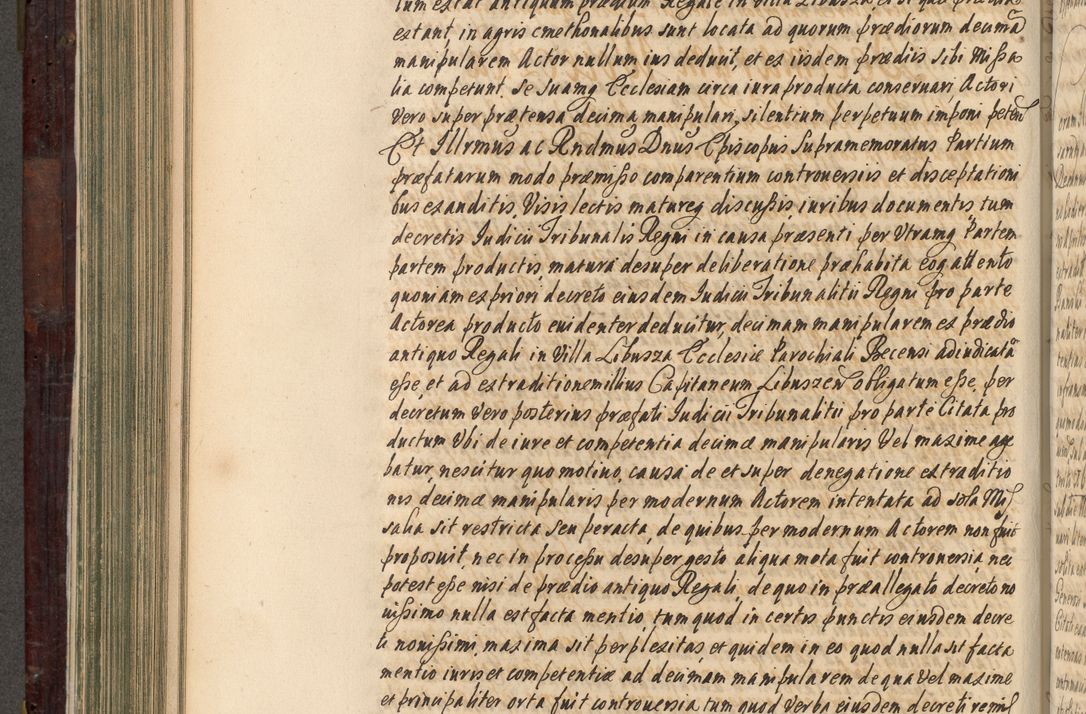 tum extat antiquum prædium Regale in Villa Libusza et si quæ
extant, in agris cmethonalibus sunt locata ad quorum prædiorum decimã
manipularem Actor nullum ius deduxit, et ex iisdem prædiis sibi Missa
lia competunt, se suamq Ecclesiam circa iura producta conseruari, Actori
vero super prætensa decima manipulari, silentium perpetuum imponi peten
Et Illrmus ac Rndmus Dnus Episcopus supramemoratus Partium
præfatarum modo præmisso comparentium controuersiis et disceptationi
bus exauditis, Visis lectis matureq discussis, iuribus documentis tum
decretis Iudicii Tribunalis Regni in causa præsenti per Vtramq Partem
partem productis, matura desuper deliberatione præhabita eoq attento
quoniam ex priori decreto eiusdem Iudicii Tribunalitii Regni pro parte
Actorea producto euidenter deducitur, decimam manipularem ex prædio
antiquo Regali in Villa Libusza Ecclesiæ Parochiali Becensi adiudicatã
esse, et ad extraditionem illius Capitaneum Libuszen obligatum esse, per
decretum vero posterius præfati Iudicii Tribunalitii pro parte Citata pro
ductum Vbi de iure et competentia decimæ manipularis Vel maxime age
batur, nescitur quo motiuo, causa de et super denegatione extraditio
nis decimæ manipularis per modernum Actorem intentata ad sola Mis
salia sit restricta seu peracta, de quibus per modernum Actorem non fuit
proposuit, nec in processu desuper gesto aliqua mota fuit controuersia, nec
potest esse nisi de prædio antiquo Regali, de quo in præallegato decreto no
uissimo nulla est facta mentio, tum quod in certis punctis eiusdem decre
ti nouissimi, maxima sit perplexitas, et quidem in eo quod nulla sit facta
mentio iuris et competentiæ ad decimam manipularem de qua Vel maxime
et principaliter orta fuit controuersia tum quod verba eiusdem decreti